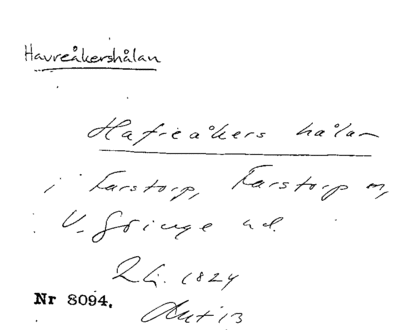 Havreåkershålan
Hafreåkers hålan
i Farstorp, Farstorp sn,
V. Göinge hd.
1824
Nr 8094.
Akt 13